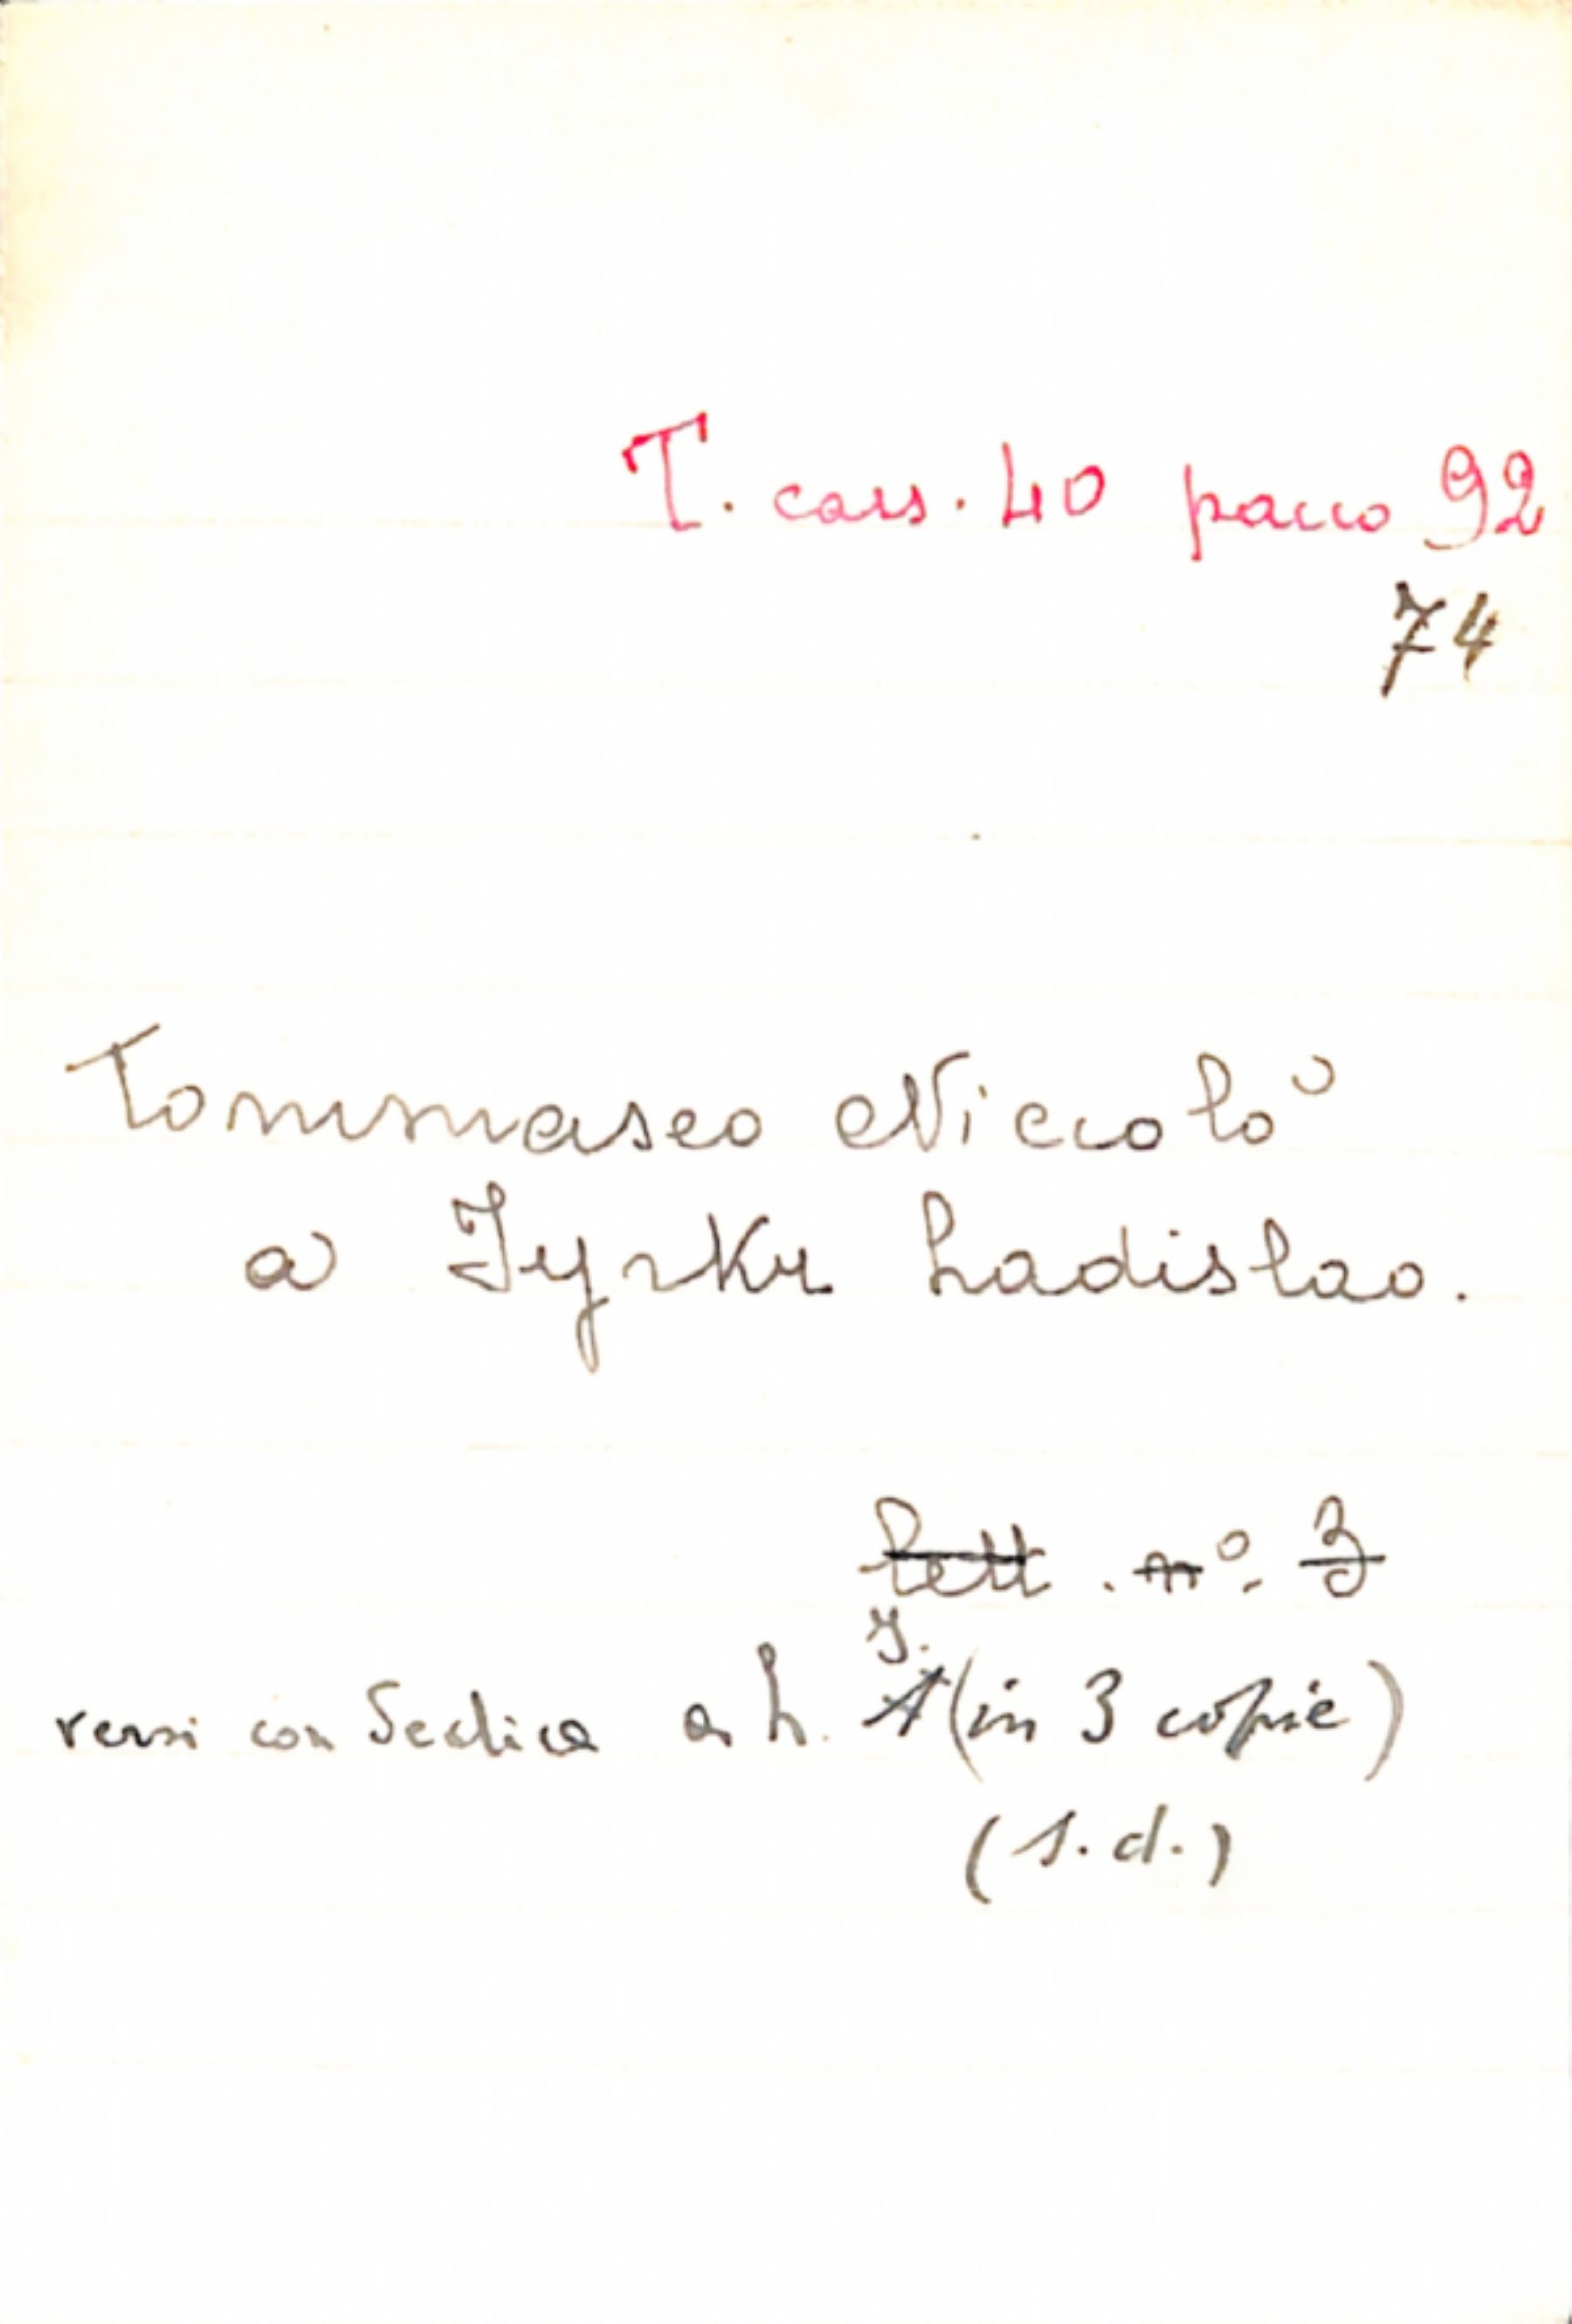 T. cass. 40 pacco 92
74
Tommaseo Niccolò
a Jyrku Ladislao.
Lett. n°. 3
J.
versi con dedica a L. A (in 3 copie)
(s.d.)